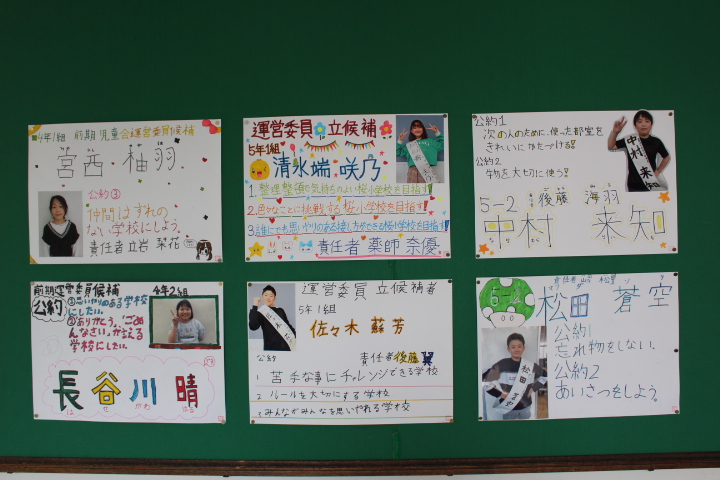 4年1組 前期児童会運営委員候補
宮西 柚羽
公約③
仲間はずれの
ない学校にしよう。
責任者 立岩 栞花
運営委員 立候補
5年1組
清水端 咲乃
1.整理整頓で気持ちのよい桜小学校を目指す!
2.色々なことに挑戦する桜小学校を目指す!
3.誰にでも思いやりのある接し方ができる桜小学校を目指す!
責任者 薬師 奈優
公約1
次の人のために、使った教室を
きれいにかたづける!
公約2
物を大切に使う!
中村 来知
5-2 後藤 海羽
中村 来知
前期運営委員候補 4年2組
公約
①思いやりのある学校
にしたい。
②ありがとう、「ごめ
んなさい」が言える
学校にしたい。
長谷川 晴
は せ がわ はる
運営委員 立候補者
5年1組
佐々木 蘇芳
公約
責任者 後藤 翼
1 苦手な事にチャレンジできる学校
2 ルールを大切にする学校
3 みんながみんなを思いやれる学校
5-2
松田 蒼空
公約1
忘れ物をしない。
公約2
あいさつをしよう。